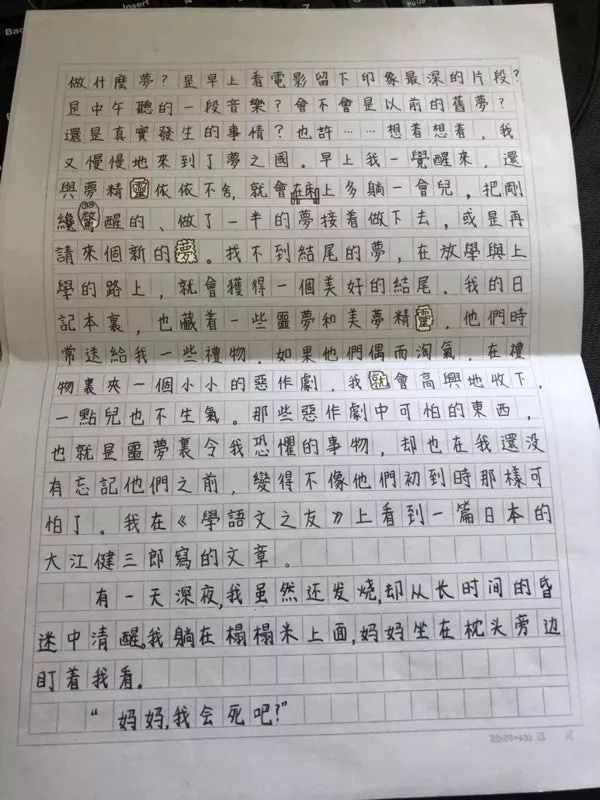 做什麼夢？是早上看電影留下印象最深的片段？
是中午聽的一段音樂？會不會是以前的舊夢？
還是真實發生的事情？也許……想着想着，我
又慢慢地來到了夢之國。早上我一覺醒來，還
與夢精靈依依不舍，就會在床上多躺一會兒，把剛
纔驚醒的、做了一半的夢接着做下去，或是再
請來個新的夢。我不到結尾的夢，在放學與上
學的路上，就會獲得一個美好的結尾。我的日
記本裏，也藏着一些靈夢和美夢精靈，他們時
常送給我一些禮物，如果他們偶而淘氣，在禮
物裏夾一個小小的惡作劇，我就會高興地收下，
一點兒也不生氣。那些惡作劇中可怕的東西，
也就是靈夢裏令我恐懼的事物，却也在我還没
有忘記他們之前，變得不像他們初到時那樣可
怕了。我在《學語文之友》上看到一篇日本的
大江健三郎寫的文章。
有一天深夜,我虽然还发烧,却从长时间的昏
迷中清醒。我躺在榻榻米上面,妈妈坐在枕头旁边
盯着我看。
“妈妈,我会死吧?”
Insert
20×20=400